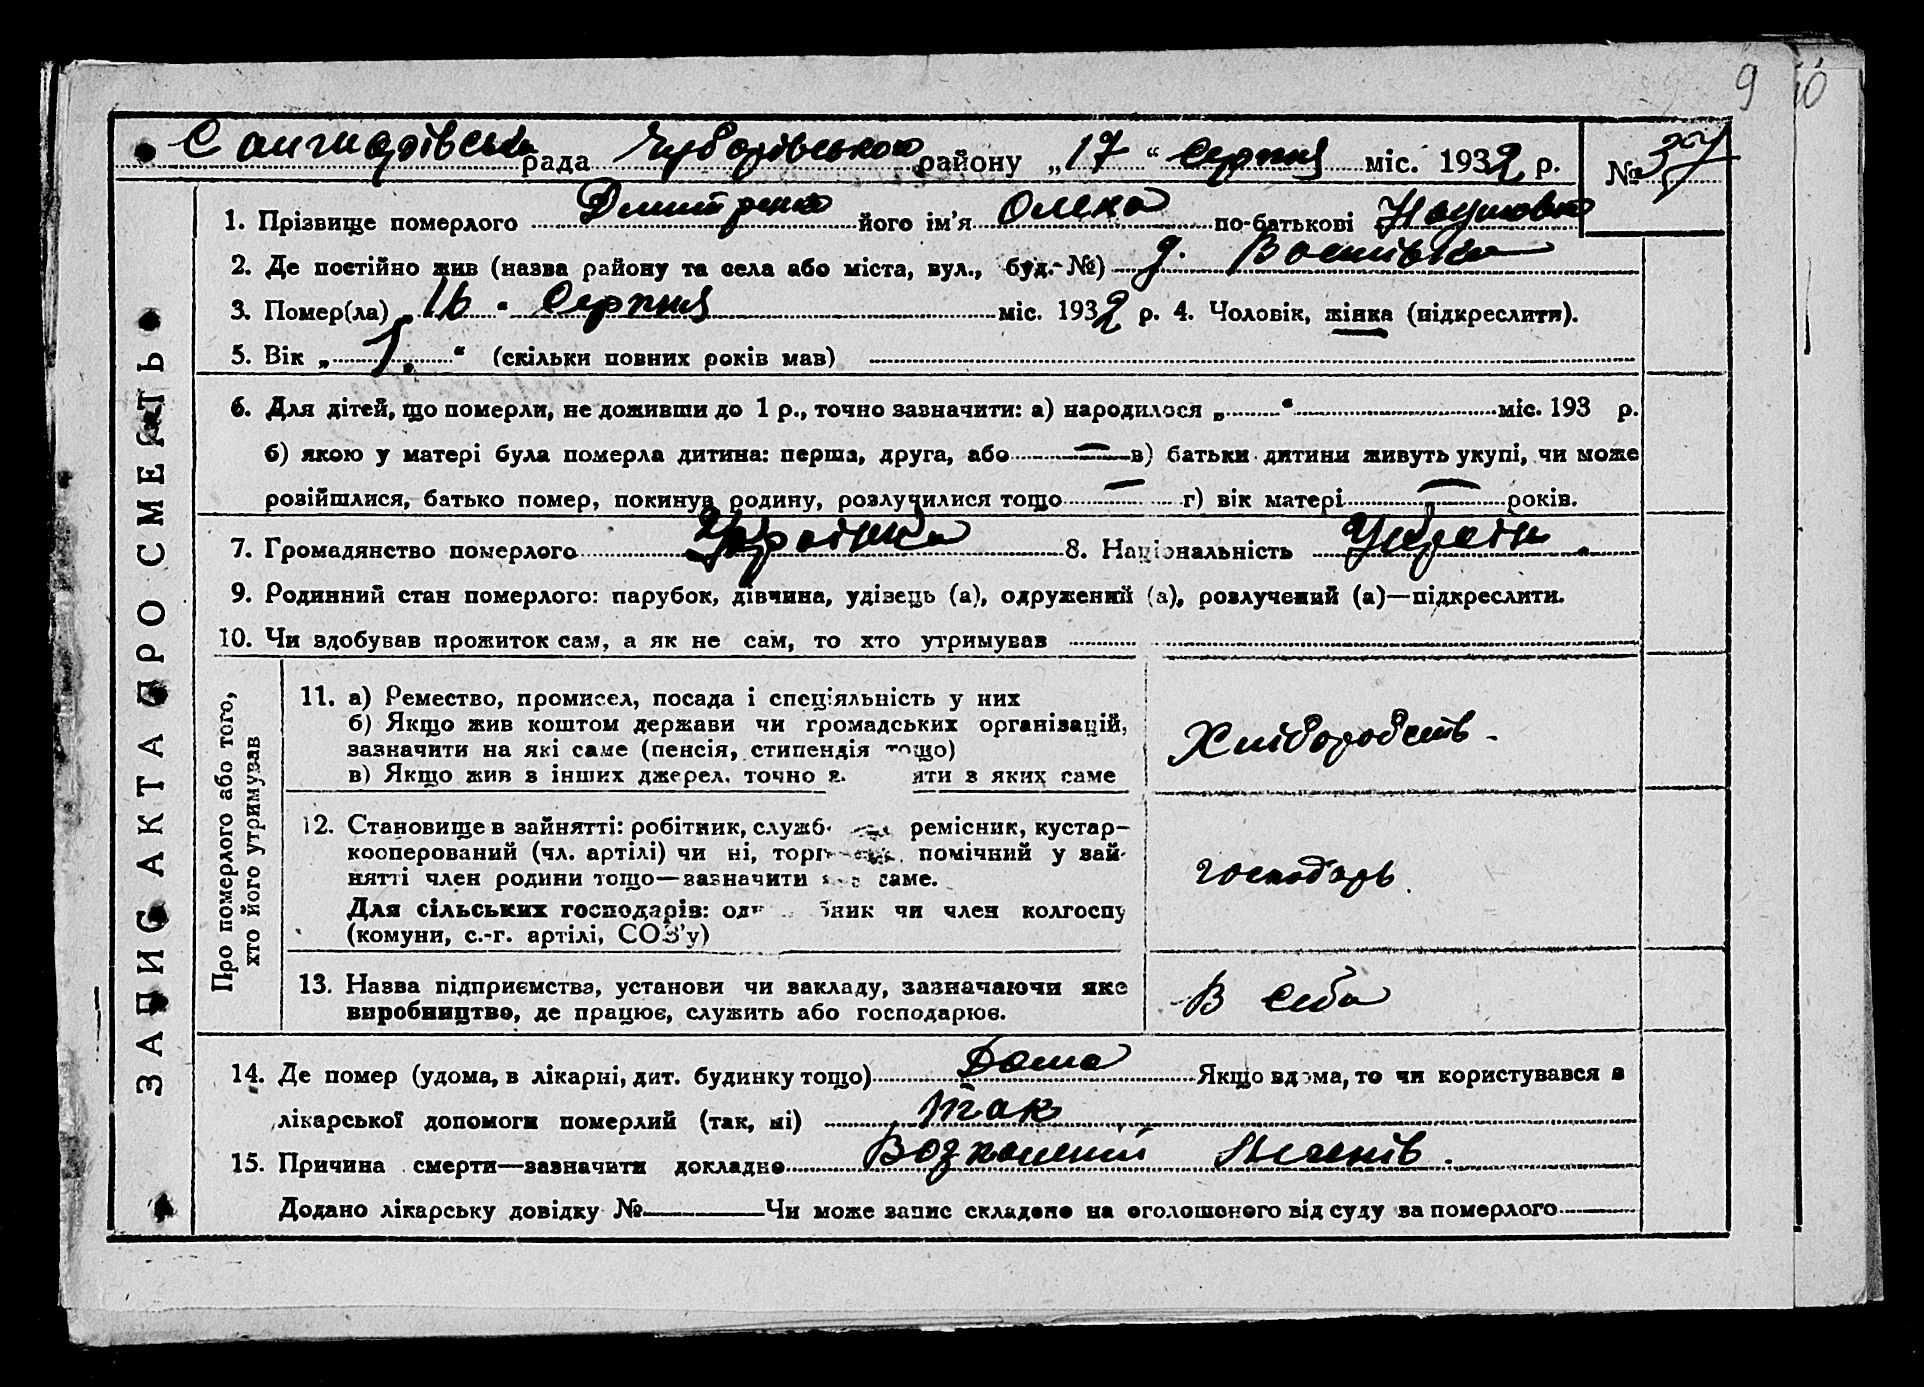 9 10
Сангидівська рада Чубарівського району „17“ Серпня міс. 1932 р. № 37
1. Прізвище померлого Дмитренко його ім’я Олека по-батькові Наумовна
2. Де постійно жив (назва району та села або міста, вул., буд. №) д.
3. Помер(ла) 16 Серпня міс. 1932 р. 4. Чоловік, жінка (підкреслити).
5. Вік „1.“ (скільки повних років мав)
6. Для дітей, що померли, не доживши до 1 р., точно зазначити: а) народилося „ “ міс. 193 р.
б) якою у матері була померла дитина: перша, друга, або — в) батьки дитини живуть укупі, чи може
розійшлися, батько помер, покинув родину, розлучилися тощо — г) вік матері — років.
7. Громадянство померлого Українка 8. Національність Україн.
9. Родинний стан померлого: парубок, дівчина, удівець (а), одружений (а), розлучений (а)—підкреслити.
10. Чи здобував прожиток сам, а як не сам, то хто утримував
11. а) Ремество, промисел, посада і спеціяльність у них
б) Якщо жив коштом держави чи громадських організацій,
зазначити на які саме (пенсія, стипендія тощо)
в) Якщо жив з інших джерел, точно з ити з яких саме
Хліборобств.
12. Становище в зайнятті: робітник, служб ремісник, кустар-
кооперований (чл. артілі) чи ні, торг помічний у зай-
нятті член родини тощо—зазначити саме.
Для сільських господарів: од бник чи член колгоспу
(комуни, с.-г. артілі, СОЗ’у)
господарь
13. Назва підприємства, установи чи закладу, зазначаючи яке
виробництво, де працює, служить або господарює.
В себа
14. Де помер (удома, в лікарні, дит. будинку тощо) Дома Якщо вдома, то чи користувався з
лікарської допомоги померлий (так, ні) так
15. Причина смерти—зазначити докладно
Додано лікарську довідку № Чи може запис складено на оголошеного від суду за померлого
ЗАПИС АКТА ПРО СМЕРТЬ
Про померлого або того,
хто його утримував